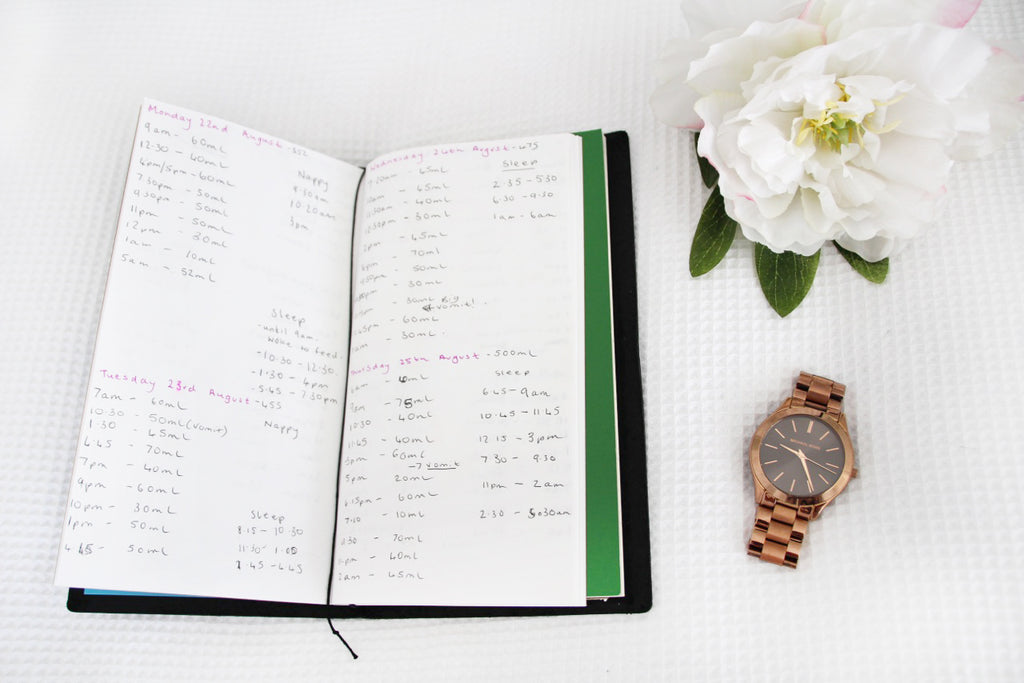 Monday 22nd August - 352
9am - 60mL
12.30 - 40mL
4pm/5pm - 60mL
7.30pm - 50mL
9.30pm - 50mL
11pm - 50mL
12pm - 30mL
1am - 10mL
5am - 52mL
Nappy
9.30am
10.20am
3pm
Sleep
-until 9am.
woke to feed.
-10.30 - 12.30
-1.30 - 4pm
-5.45 - 7.30pm
Tuesday 23rd August - 455
7am - 60mL
10.30 - 50mL (vomit)
1.30 - 45mL
4.45 - 70mL
7pm - 40mL
9pm - 60mL
10pm - 30mL
1pm - 50mL
4.45 - 50mL
Nappy
Sleep
8.15 - 10.30
11.30 - 1.00
2.45 - 4.45
Wednesday 24th August - 475
7.20am - 45mL
- 45mL
- 40mL
12.30pm - 30mL
- 45mL
- 70mL
- 50mL
- 30mL
- 30mL Big
vomit!
- 60mL
- 30mL.
Sleep
2.35 - 5.30
6.30 - 9.30
1am - 6am
Thursday 25th August - 500mL
- mL
9am - 75mL
10.30 - 40mL
11.45 - 40mL
- 60mL
vomit
5pm 20mL
6.15pm - 60mL
7.20 - 10mL
- 70mL
- 40mL
2am - 45mL
Sleep
6.45 - 9am
10.45 - 11.45
12.15 - 3pm
7.30 - 9.30
11pm - 2am
2.30 - 5.30am
MICHAEL KORS